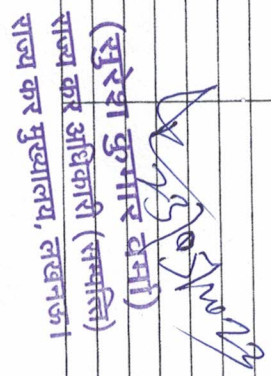 (सुरेश कुमार वर्मा)
राज्य कर अधिकारी (सम्पत्ति)
राज्य कर मुख्यालय, लखनऊ।